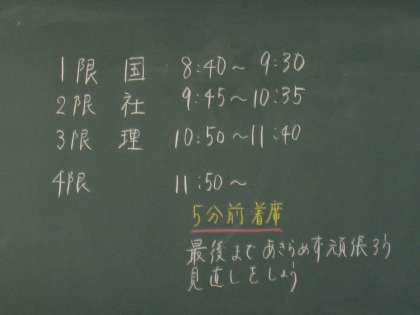 1限 国 8:40～9:30
2限 社 9:45～10:35
3限 理 10:50～11:40
4限 11:50～
5分前着席
最後まであきらめず頑張ろう
見直しをしよう